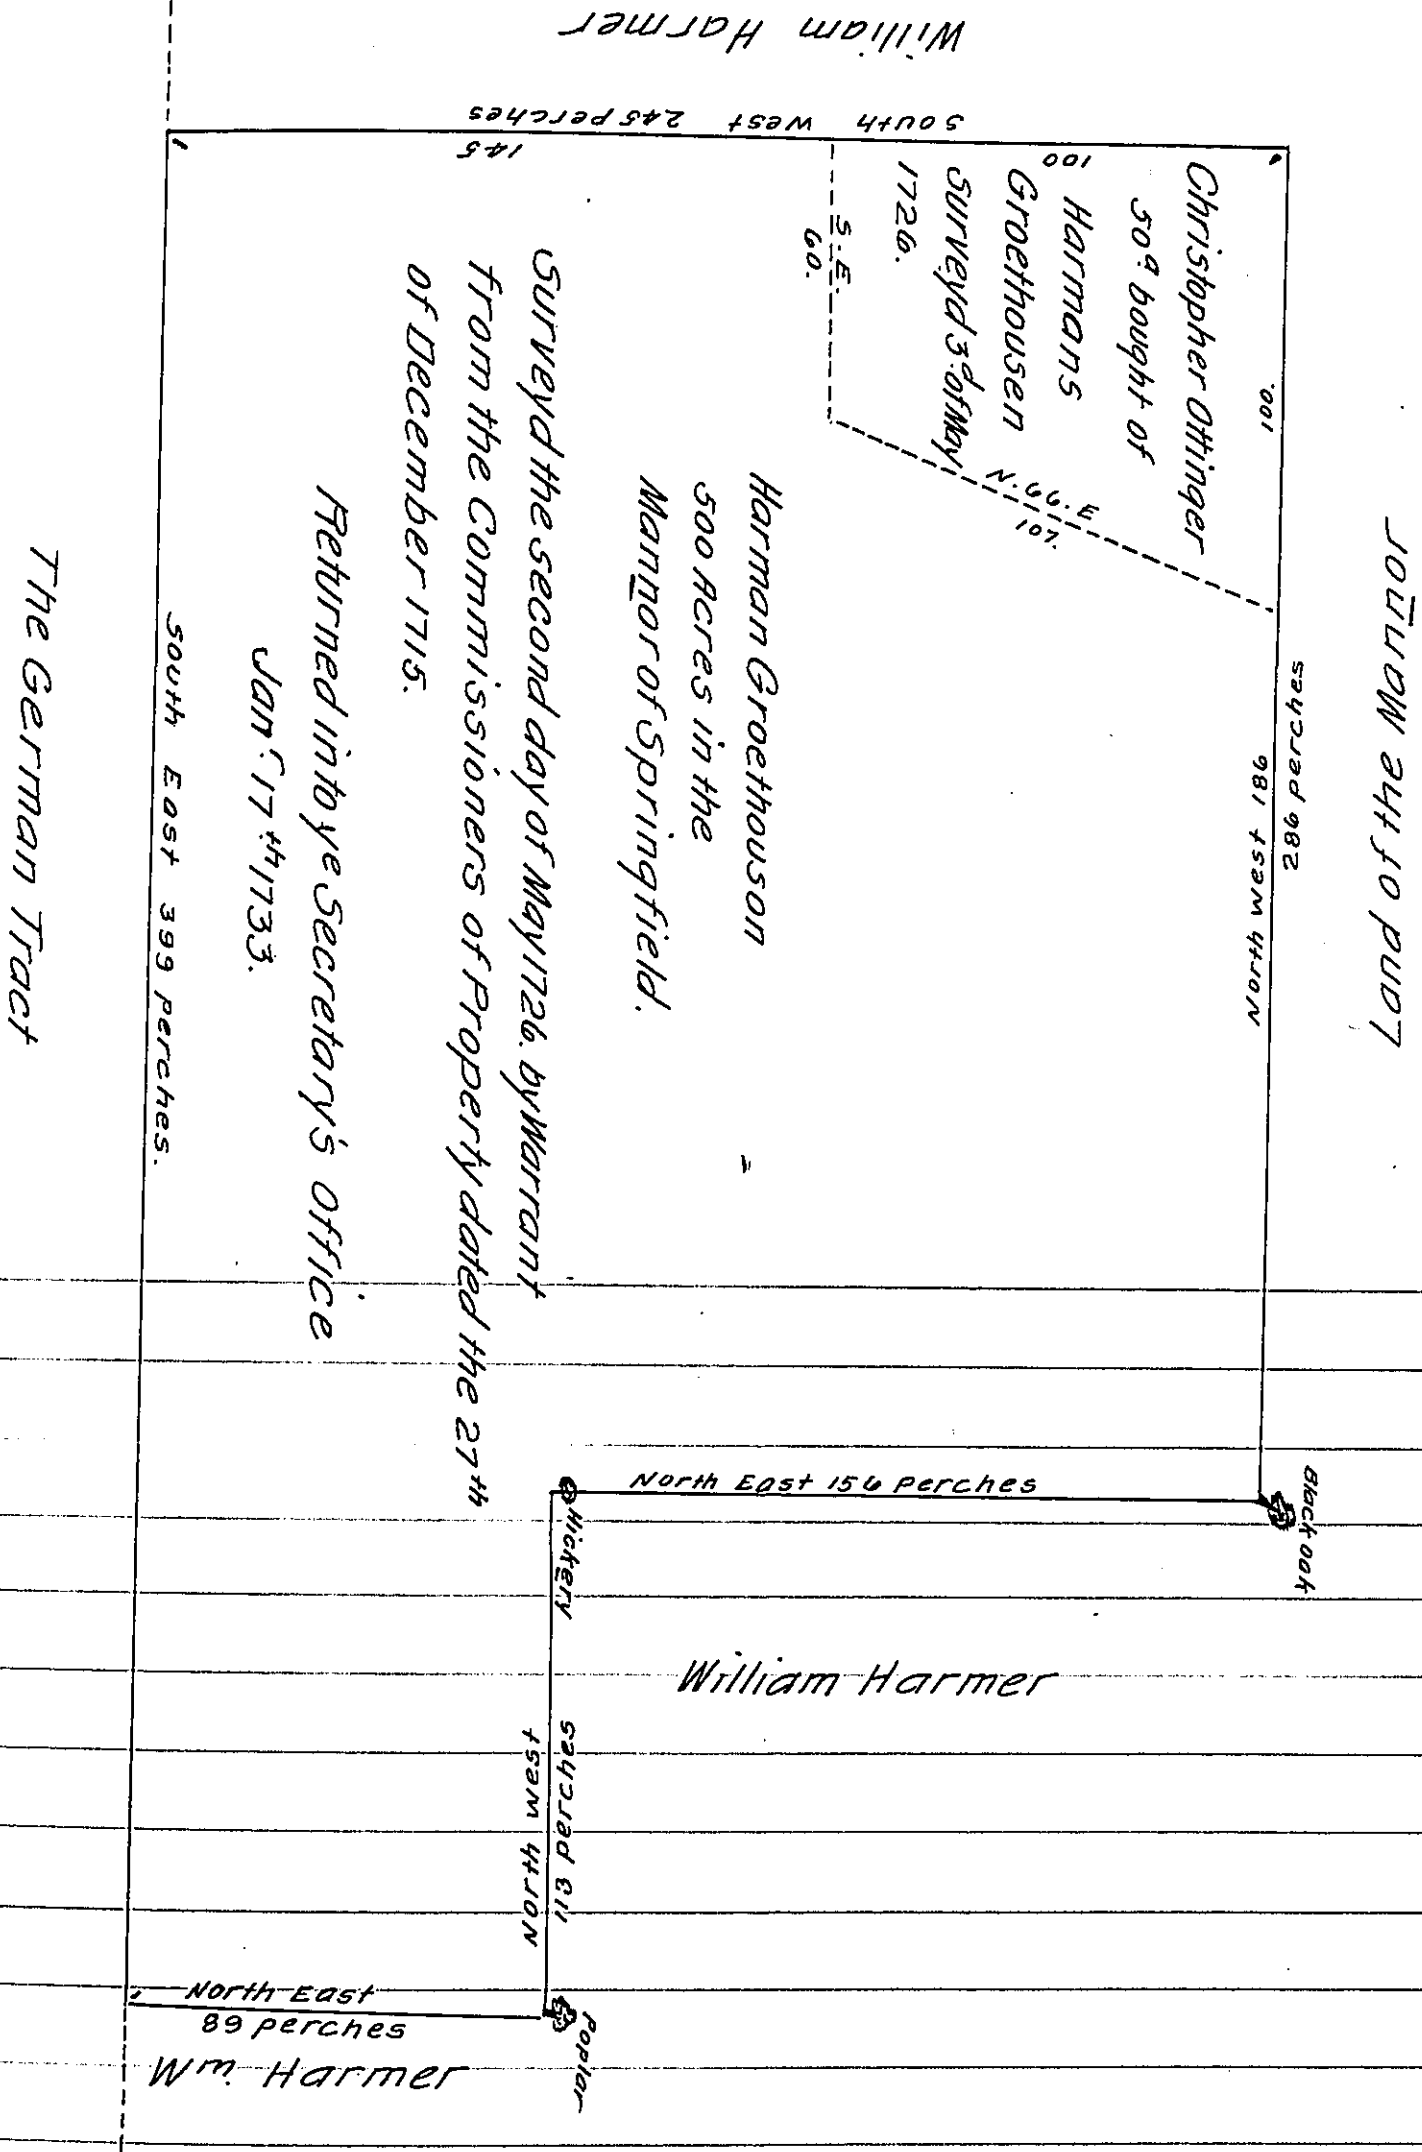 William Harmer
South West 245 perches
145
100
Christopher Ottinger
50a bought of
Harmans
Groethousen
Surveyd 3d of May
1726.
S.E.
60.
100.
N.66.E
107.
Land of the Mannor
286 perches
North West 186
Harman Groethouson
500 Acres in the
Mannor of Springfield.
Surveyd the second day of May 1726. by Warrant
from the Commissioners of Property dated the 27th
of December 1715.
Returned into ye Secretary's Office
Janr. 17th 1733.
South East 399 perches.
The German Tract
North East 156 Perches
Black oak
Hickery
William Harmer
113 perches
North West
Poplar
North East
89 perches
Wm. Harmer